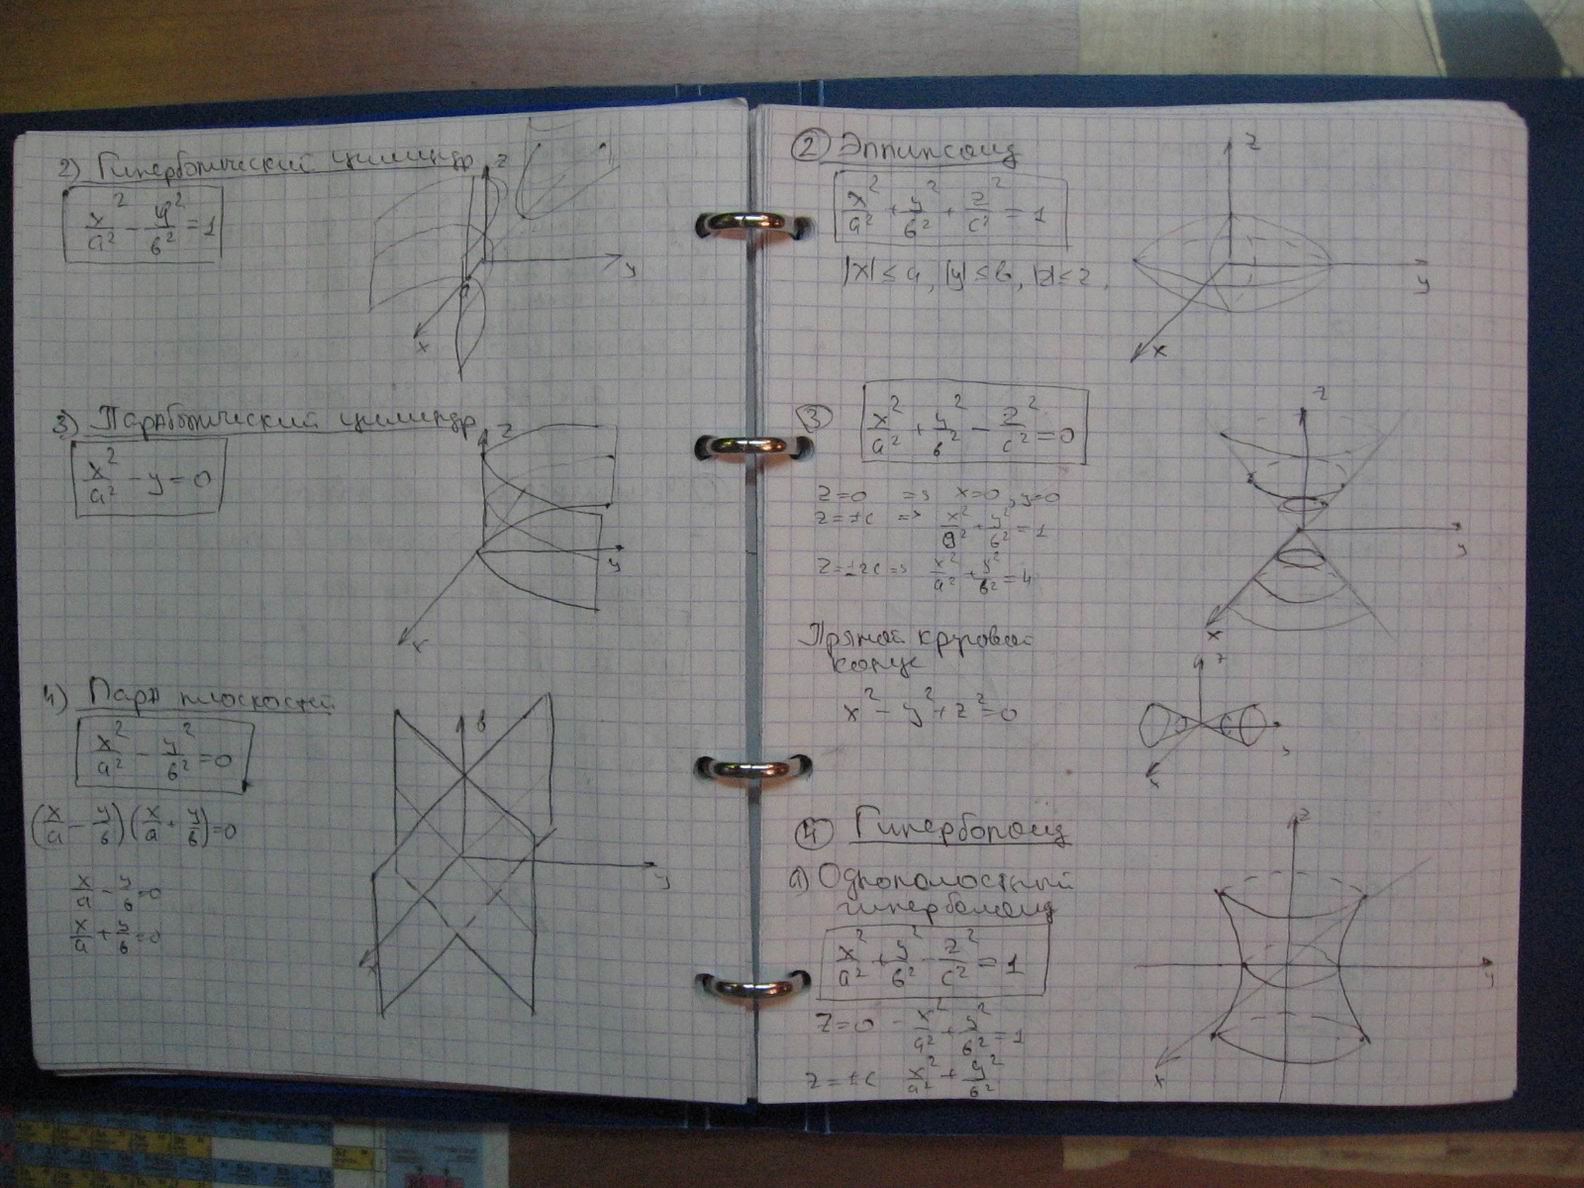 2) Гиперболический цилиндр
x²/a² - y²/b² = 1
z
y
a
x
3) Параболический цилиндр
x²/a² - y = 0
z
y
x
4) Пара плоскостей
x²/a² - y²/b² = 0
(x/a - y/b)(x/a + y/b) = 0
x/a - y/b = 0
x/a + y/b = 0
y
x
② Эллипсоид
x²/a² + y²/b² + z²/c² = 1
|x| ≤ a, |y| ≤ b, |z| ≤ z,
z
y
x
③ x²/a² + y²/b² - z²/c² = 0
z=0 => x=0, y=0
z=±c => x²/a² + y²/b² = 1
z=±2c => x²/a² + y²/b² = 4
z
y
x
Прямой круговой
конус
x² - y² + z² = 0
z
④ Гиперболоид
а) Однополостный
гиперболоид
x²/a² + y²/b² - z²/c² = 1
z=0 - x²/a² + y²/b² = 1
z=±c x²/a² + y²/b²
z
y
x